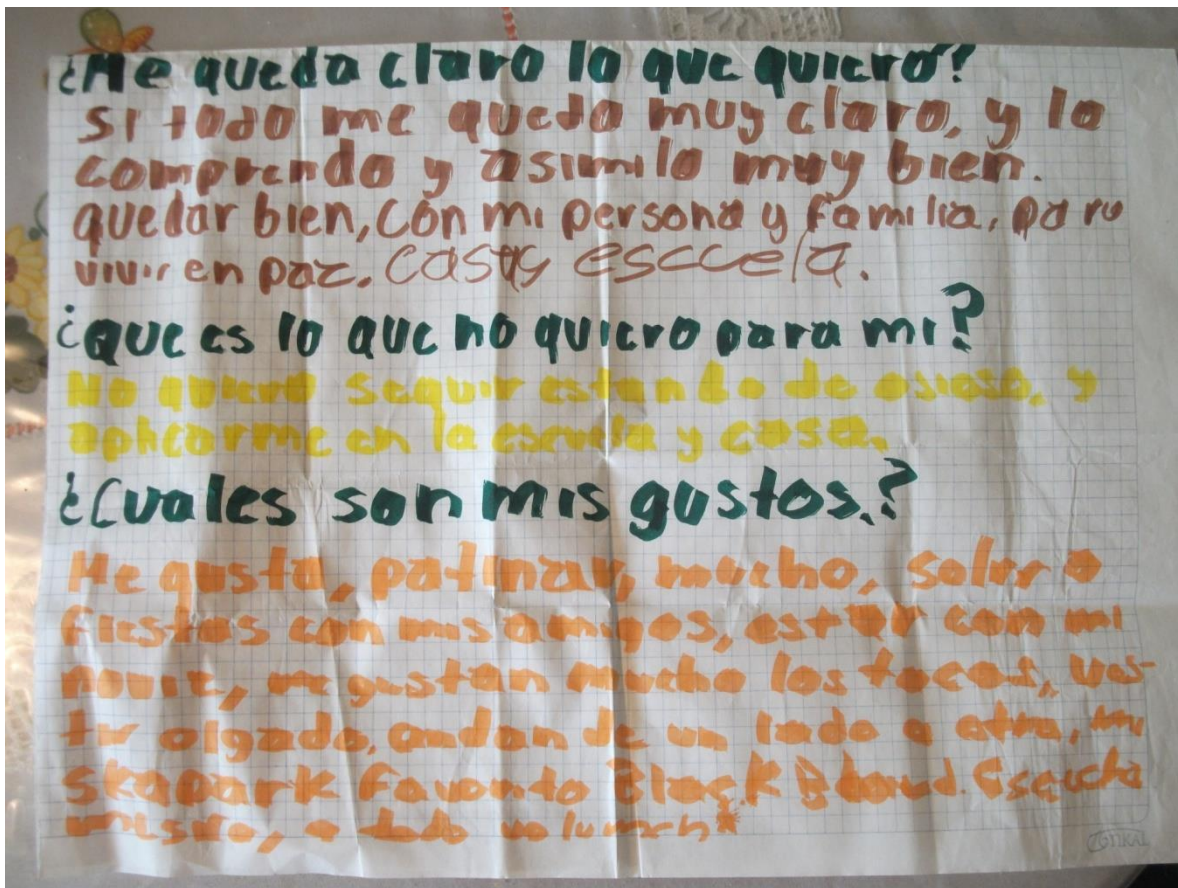 ¿Me queda claro lo que quiero?
si todo me queda muy claro, y lo
comprendo y asimilo muy bien.
quedar bien, con mi persona y familia, para
vivir en paz. casa y esccela.
¿que es lo que no quiero para mi?
No quiero seguir estando de osioso, y
aplicarme en la escuela y casa.
¿Cuales son mis gustos.?
Me gusta, patinar, mucho, salir a
fiestas con mis amigos, estar con mi
novia, me gustan mucho los tocas, ves-
tir olgado, andan de un lado a otro, mi
skapark favorito Black Board. Escucha
musico, a todo volumen*